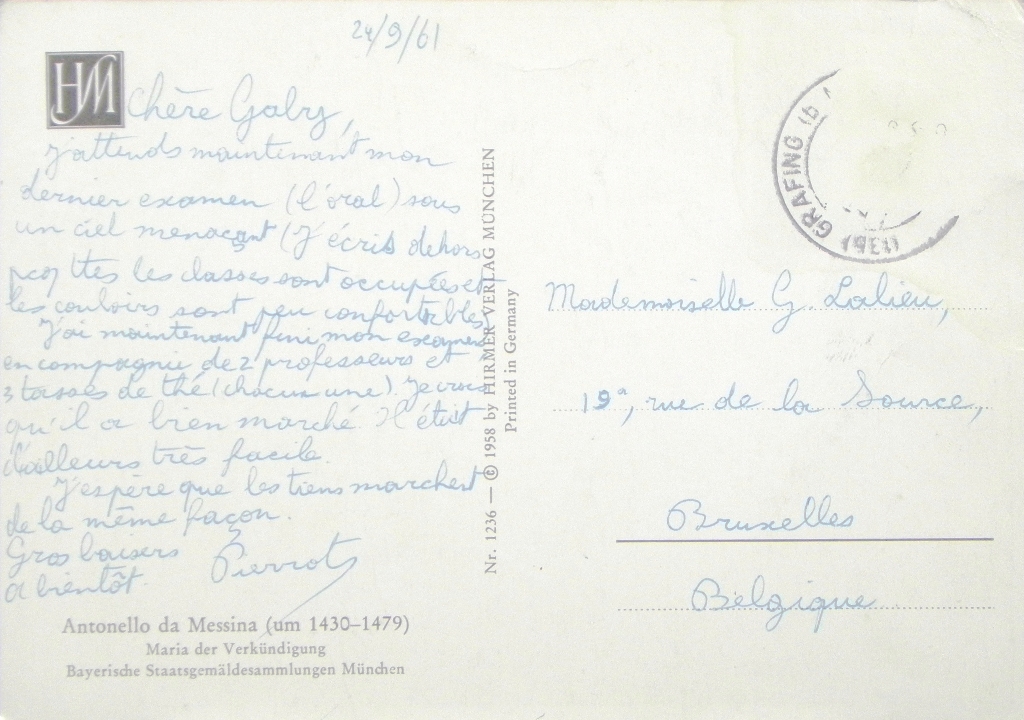 24/9/61
HM
Chère Gaby,
J'attends maintenant mon
dernier examen (l'oral) sous
un ciel menaçant (J'écris dehors
pcq ttes les classes sont occupées et
les couloirs sont peu confortables
J'ai maintenant fini mon examen
en compagnie de 2 professeurs et
3 tasses de thé (chacun une). Je crois
qu'il a bien marché. Il était
d'ailleurs très facile.
J'espère que les tiens marchent
de la même façon.
Gros baisers
à bientôt.
Pierrot
Antonello da Messina (um 1430–1479)
Maria der Verkündigung
Bayerische Staatsgemäldesammlungen München
Nr. 1236 — © 1958 by HIRMER VERLAG MÜNCHEN
Printed in Germany
(13b) GRAFING (b
Mademoiselle G. Lalieu,
19a, rue de la Source,
Bruxelles
Belgique